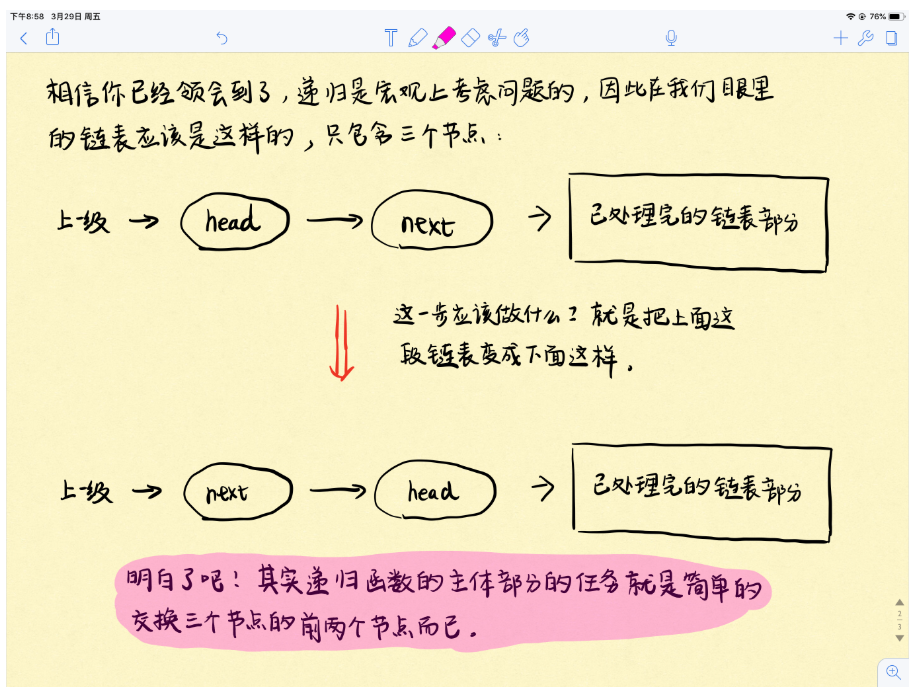 下午8:58 3月29日 周五
76%
T
相信你已经领会到了，递归是宏观上考虑问题的，因此在我们眼里
的链表应该是这样的，只包含三个节点：
上一级 → head → next → 已处理完的链表部分
这一步应该做什么？就是把上面这
段链表变成下面这样。
上一级 → next → head → 已处理完的链表部分
明白了吧！其实递归函数的主体部分的任务就是简单的
交换三个节点的前两个节点而已。
2
3